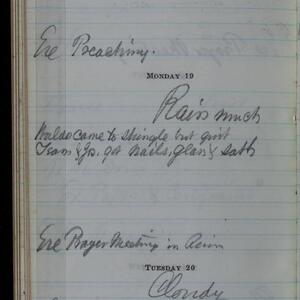 Eve Preaching.
MONDAY 19
Rain much
Waldo came to shingle but quit
Team & Jo. got nails, glass & sash
Eve Prayer Meeting in
TUESDAY 20
Cloudy